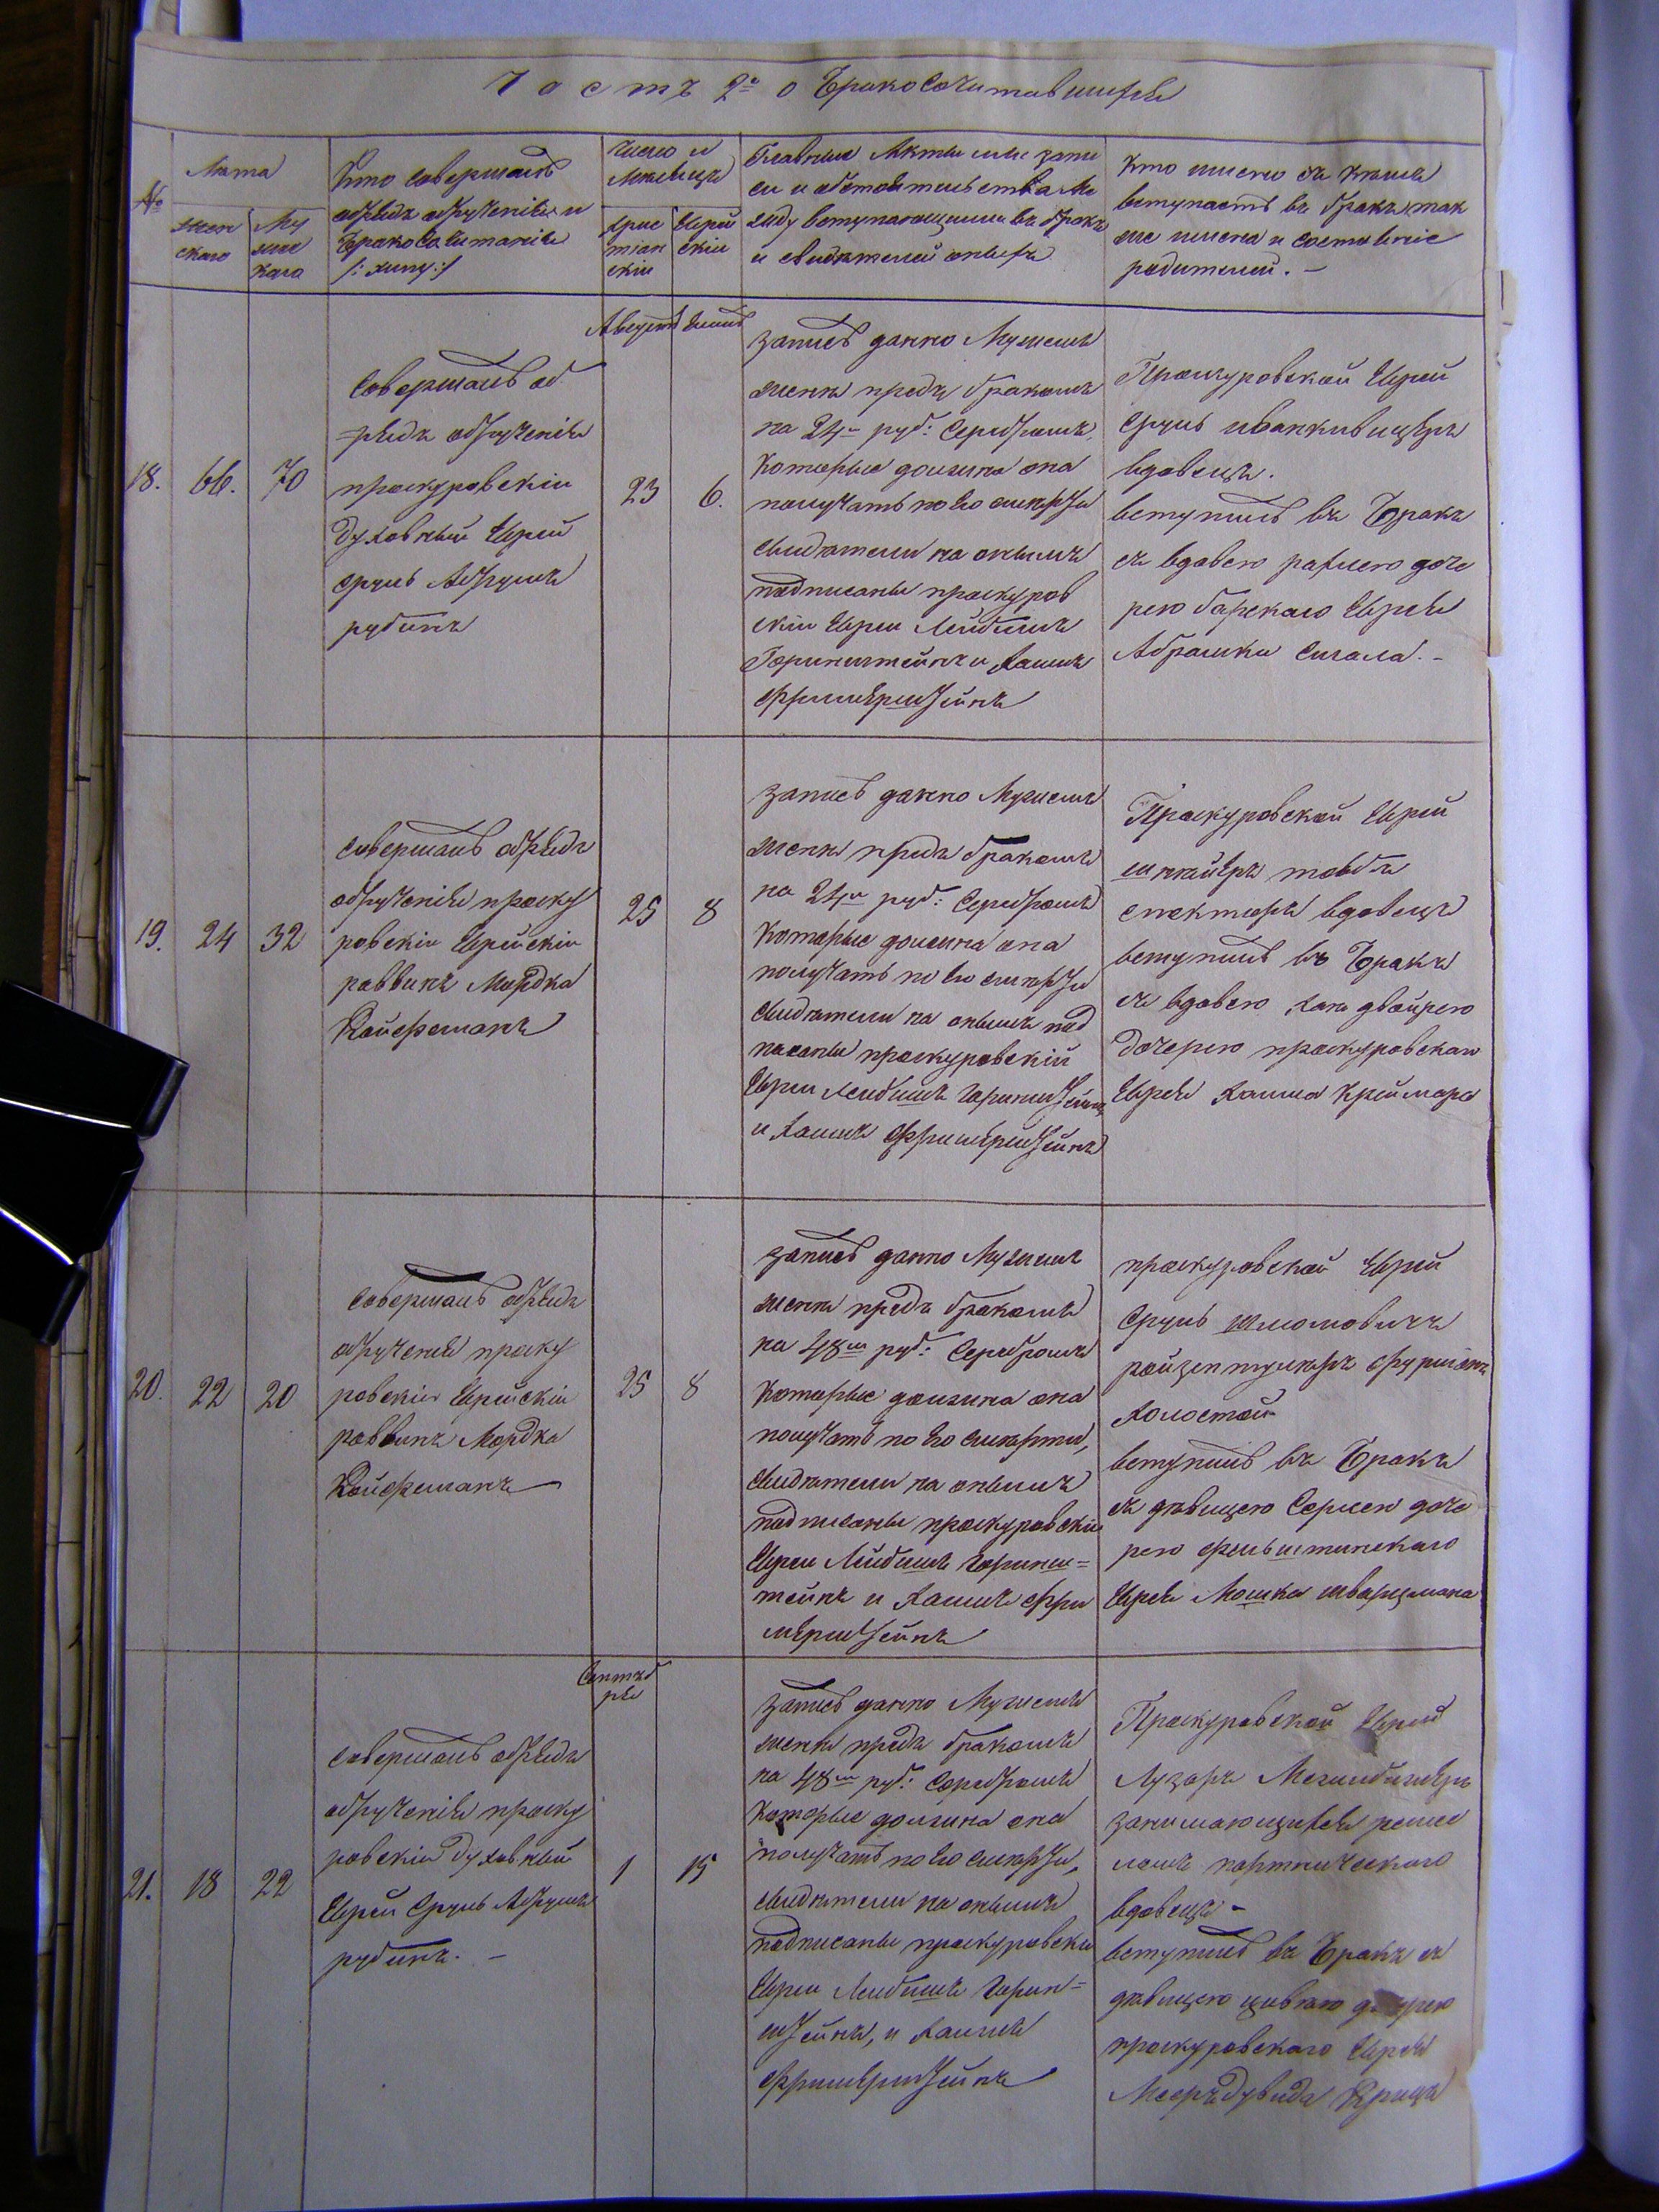 Часть 2я о Бракосочитавшихся
№
Лѣта
Женскаго
Мужескаго
Кто совершалъ
обрядъ обрученія и
Бракосочитанія
/: хипу :/
Число и
Мѣсяцъ
Христіанскій
Еврейскій
Главные Акты или запи
си и обстоятельства ме
жду вступающими въ бракъ
и свидѣтелей оныхъ
Кто именно съ кемъ
вступаетъ въ бракъ, так
же имена и состояніе
родителей. —
Августъ Елюль
18.
66.
70
Совершалъ об
рядъ обрученія
проскуровскій
духовный Еврей
Сруль Абрумъ
рубинъ
23
6.
запись данно Мужемъ
жене предъ бракомъ
на 24м руб: Серебромъ,
Которые должна она
получать по его смерти
свидѣтели на онымъ
подписаны проскуров
скіи Евреи Лейбишъ
Горинштейнъ и Хаимъ
Фримерштейнъ
Проскуровской Еврей
Сруль
вдовецъ.
вступилъ въ Бракъ
съ вдовею рахлею доче
рею барскаго Еврея
Абрашки Сигала. —
19.
24
32
совершалъ обрядъ
обрученія проску
ровскіи Еврейскіи
раввинъ Мордка
Койфманъ
25
8
запись данно Мужемъ
жене предъ бракомъ
на 24м руб: Серебромъ
Которые должна она
получать по его смерти
свидѣтели на онымъ под
писаны проскуровскій
Евреи Лейбишъ Горинштейнъ
и Хаимъ Фримерштейнъ
Проскуровской Еврей
товбъ
спекторъ вдовецъ
вступилъ въ Бракъ
съ вдовею Хаю двойрею
дочерею проскуровскаго
Еврея Хаима Креймара
20.
22
20
Совершалъ обрядъ
обрученія проску
ровскіи Еврейскіи
раввинъ Мордка
Койфманъ
25
8
запись данно Мужемъ
жене предъ бракомъ
на 48м руб: Серебромъ
Которые должна она
получать по его смерти,
свидѣтели на онымъ
подписаны проскуровскіи
Евреи Лейбишъ Горинш=
тейнъ и Хаимъ Фри
мерштейнъ
проскуровской Еврей
Сруль Шлюмовичъ
Холостой
вступилъ въ Бракъ
съ дѣвицею Сорлею доче
рею фельштинскаго
Еврея Мошка шварцмана
Сентяб
ря
21.
18
22
совершалъ обрядъ
обрученія проску
ровскіи духовный
Еврей Сруль Абрумъ
рубинъ. —
1
15
запись данно Мужемъ
жене предъ бракомъ
на 48м руб: Серебромъ
Которые должна она
получать по его смерти,
свидѣтели на онымъ
подписаны проскуровски
Евреи Лейбишъ Горин=
штейнъ, и Хаимъ
Фримерштейнъ
Проскуровской Еврей
Лузаръ
занимающихся ремес
ломъ портническаго
вдовецъ —
вступилъ въ Бракъ съ
дѣвицею цивкаю дочерею
проскуровскаго Еврея
Меера дувида Крица